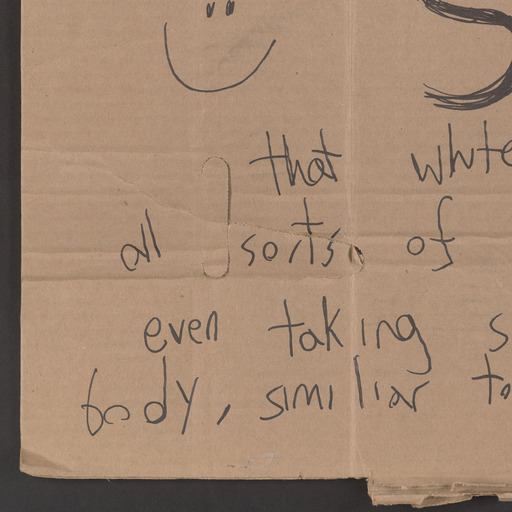 S
that white
all sorts of
even taking s
body, similiar to